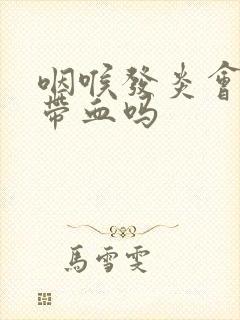 咽喉發炎會
帶血吗
馬雪雯